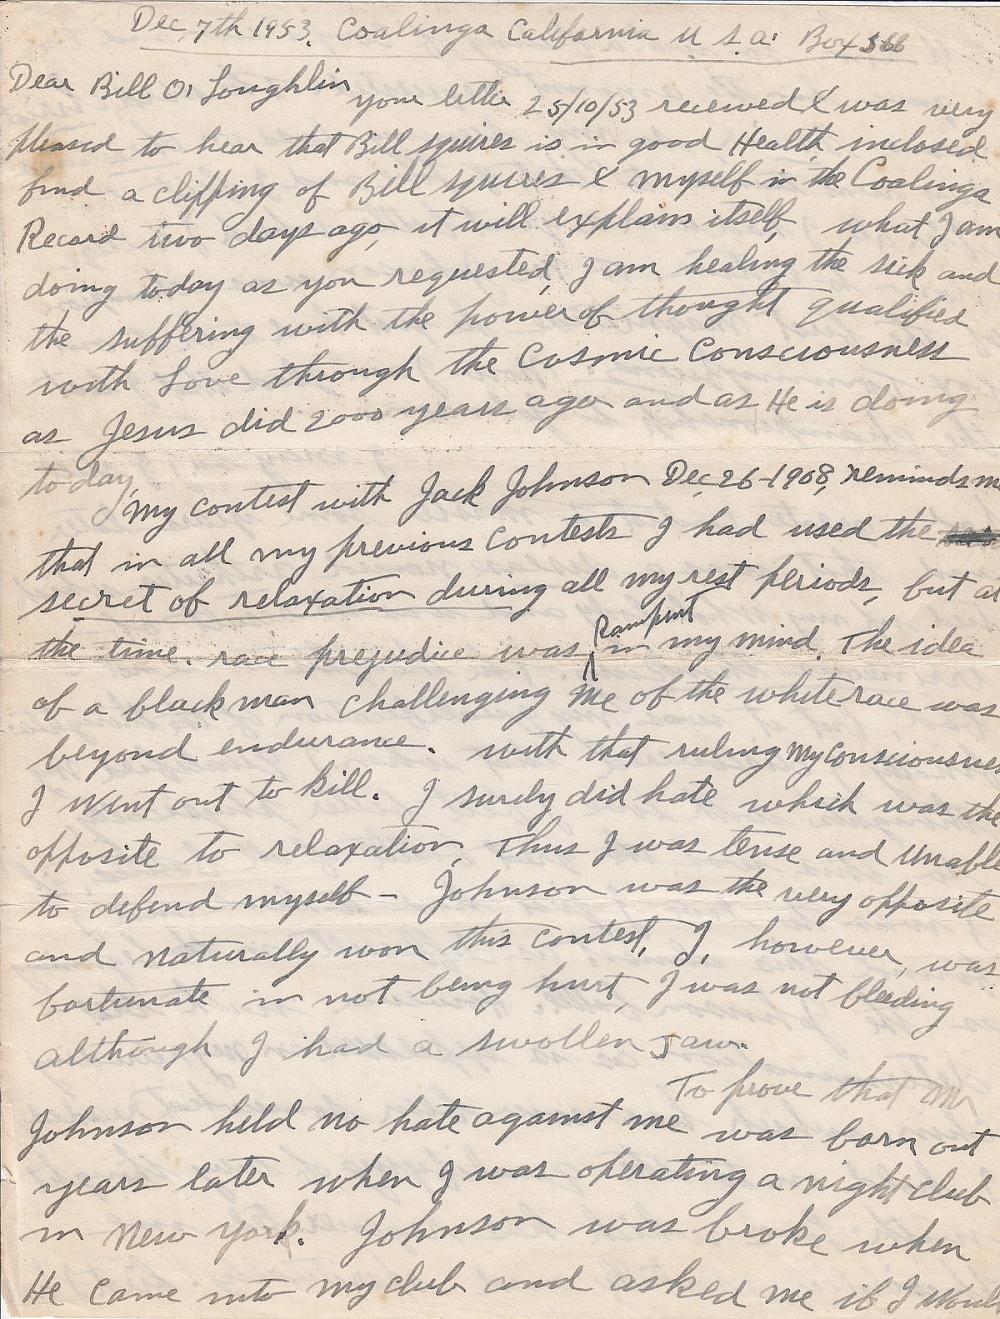 Dec, 7th 1953, Coalinga California U.S.A. Box 566
Dear Bill O, Loughlin
your letter 25/10/53 received & was very
pleased to hear that Bill squires is in good Health, inclosed
find a clipping of Bill squires & myself in the Coalinga
Record two days ago, it will explain itself, what I am
doing today as you requested, I am healing the sick and
the suffering with the power of thought qualified
with Love through the Cosmic Consciousness
as Jesus did 2000 years ago and as He is doing
today,
My contest with Jack Johnson Dec, 26-1908, reminds me
that in all my previous contests I had used the
secret of relaxation during all my rest periods, but at
the time. race prejudice was Rampent in my mind. The idea
of a black man challenging me of the white race was
beyond endurance. with that ruling my consciousness
I went out to kill. I surely did hate which was the
opposite to relaxation, Thus I was tense and unable
to defend myself - Johnson was the very opposite
and naturally won this contest, I, however, was
fortunate in not being hurt, I was not bleeding
although I had a swollen jaw.
To prove that Mr
Johnson held no hate against me was born out
years later when I was operating a night club
in New York. Johnson was broke when
He came into my club and asked me if I would